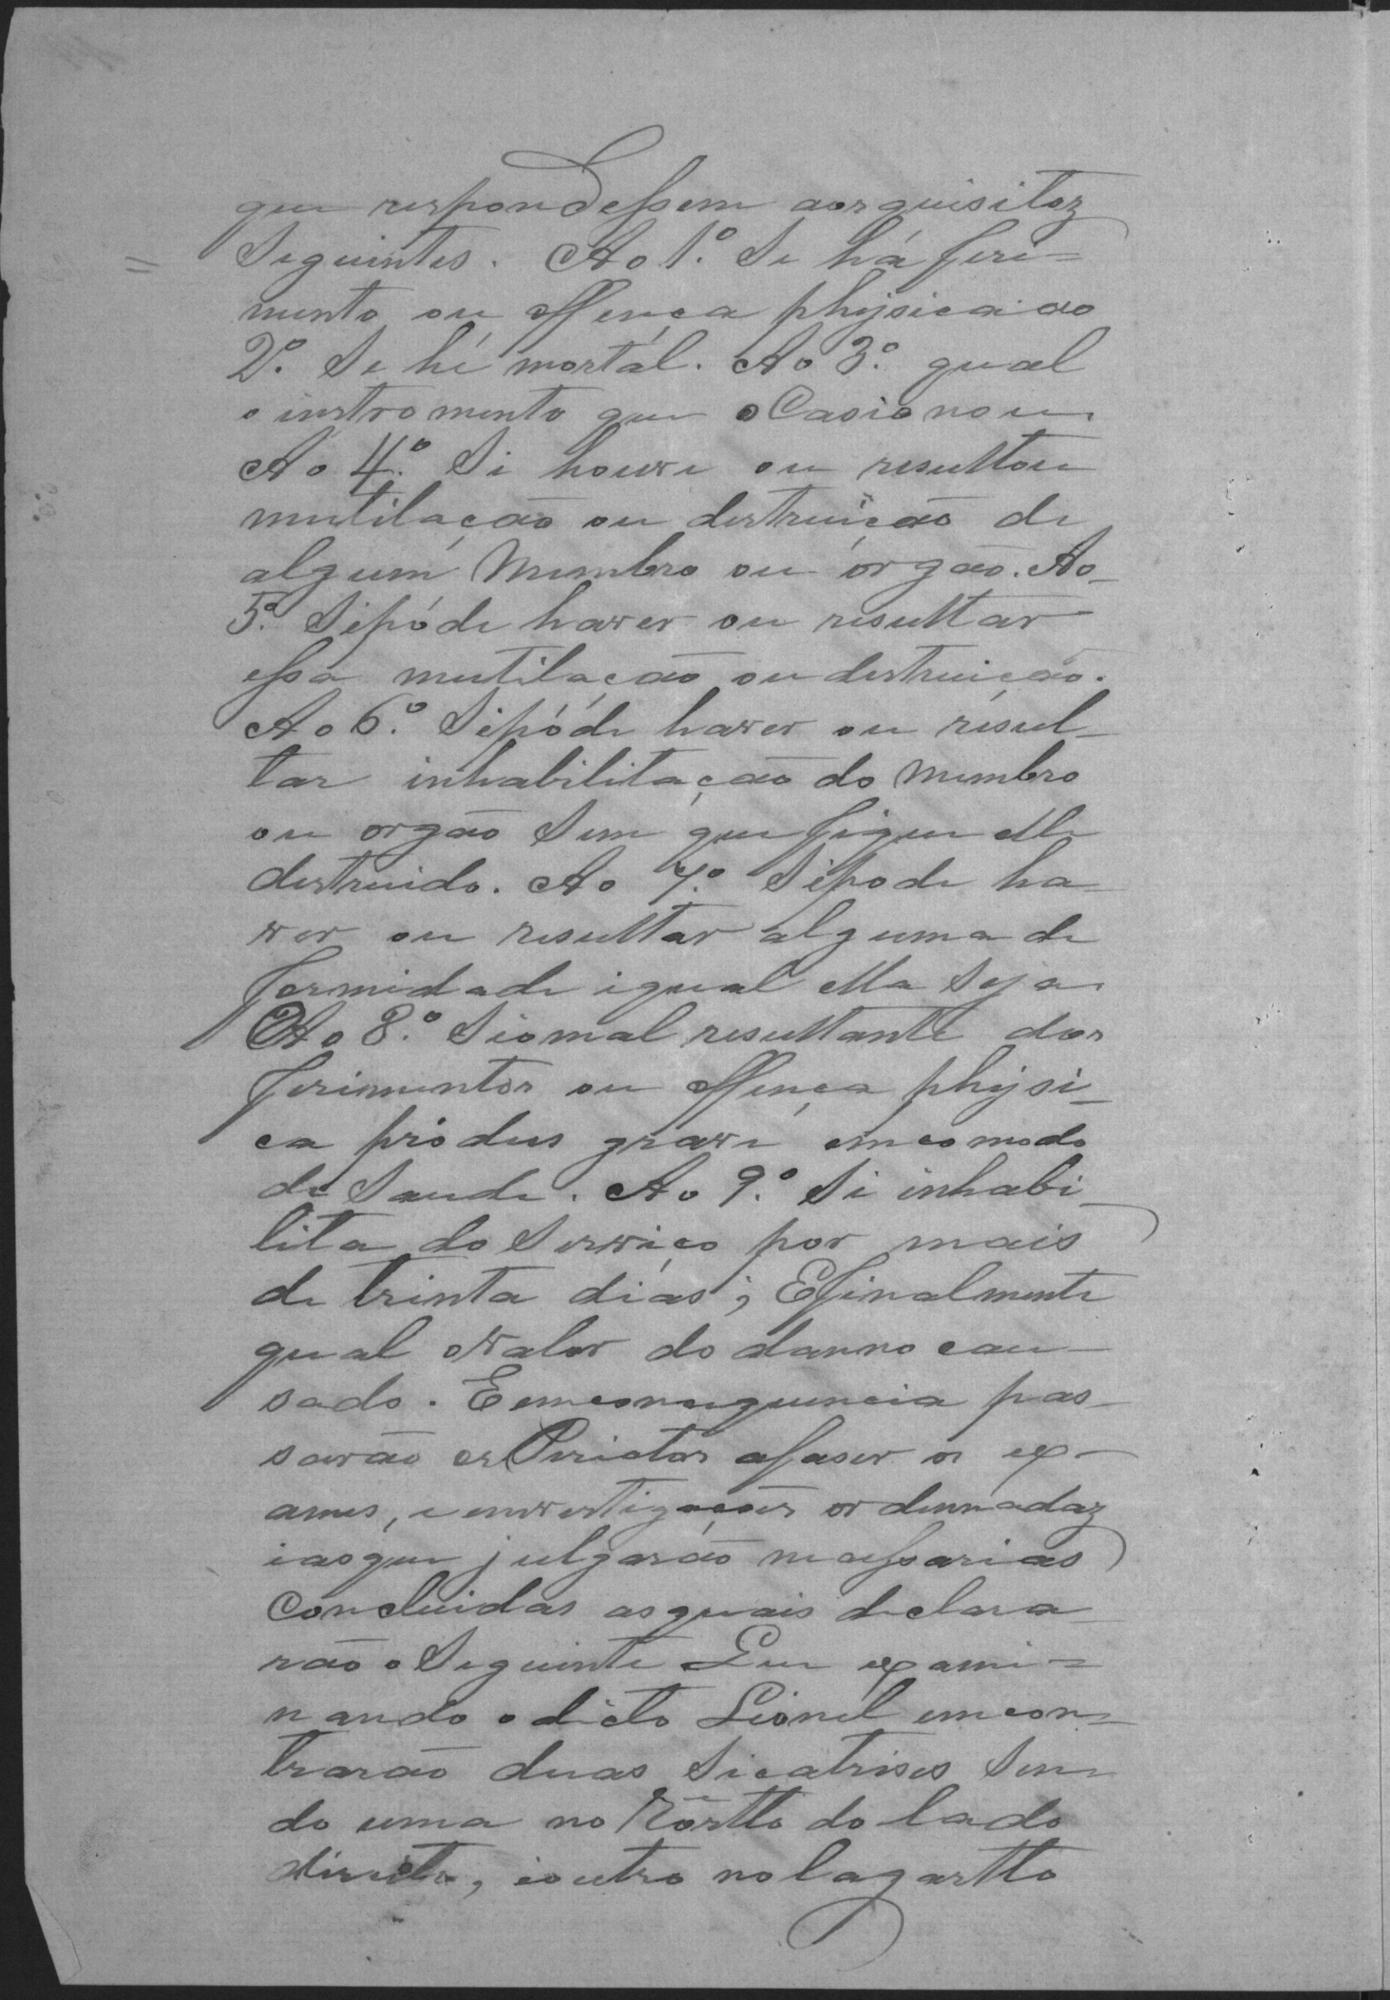 que respondessem aos quisitos
Seguintes. Ao 1.º Se há feri=
mento ou offença physica ao
2.º Se hé mortal. Ao 3.º qual
o instromento que o Casionou.
Ao 4.º Si houve ou resultou
mutilação ou destruição de
algum Membro ou órgão. Ao
5.º Sipóde haver ou resultar
essa mutilação ou destruição.
Ao 6.º Sipóde haver ou resul-
tar inhabilitação do Membro
ou orgão Sem que fique elle
destruido. Ao 7.º Sipode ha-
ver ou resultar alguma de
formidade igual ella Seja
Ao 8.º Siomal resultante dos
ferimentos ou offença physi-
ca produs grave emcomodo
de Saude. Ao 9.º Si inhabi-
lita do Serviço por mais
de trinta dias; Efinalmente
qual ovalor do danno cau-
sado. Eemconsequencia pas-
sarão os Perictos afaser os ex-
ames, e envestigações ordennadas
easque julgarão necessarias
Concluidas asquais declara
rão o Seguinte Que exami=
nando o dicto Lionel emcon-
trarão duas Sicatrises Sen-
do uma no Rostto do lado
direito, eoutro no lagartto